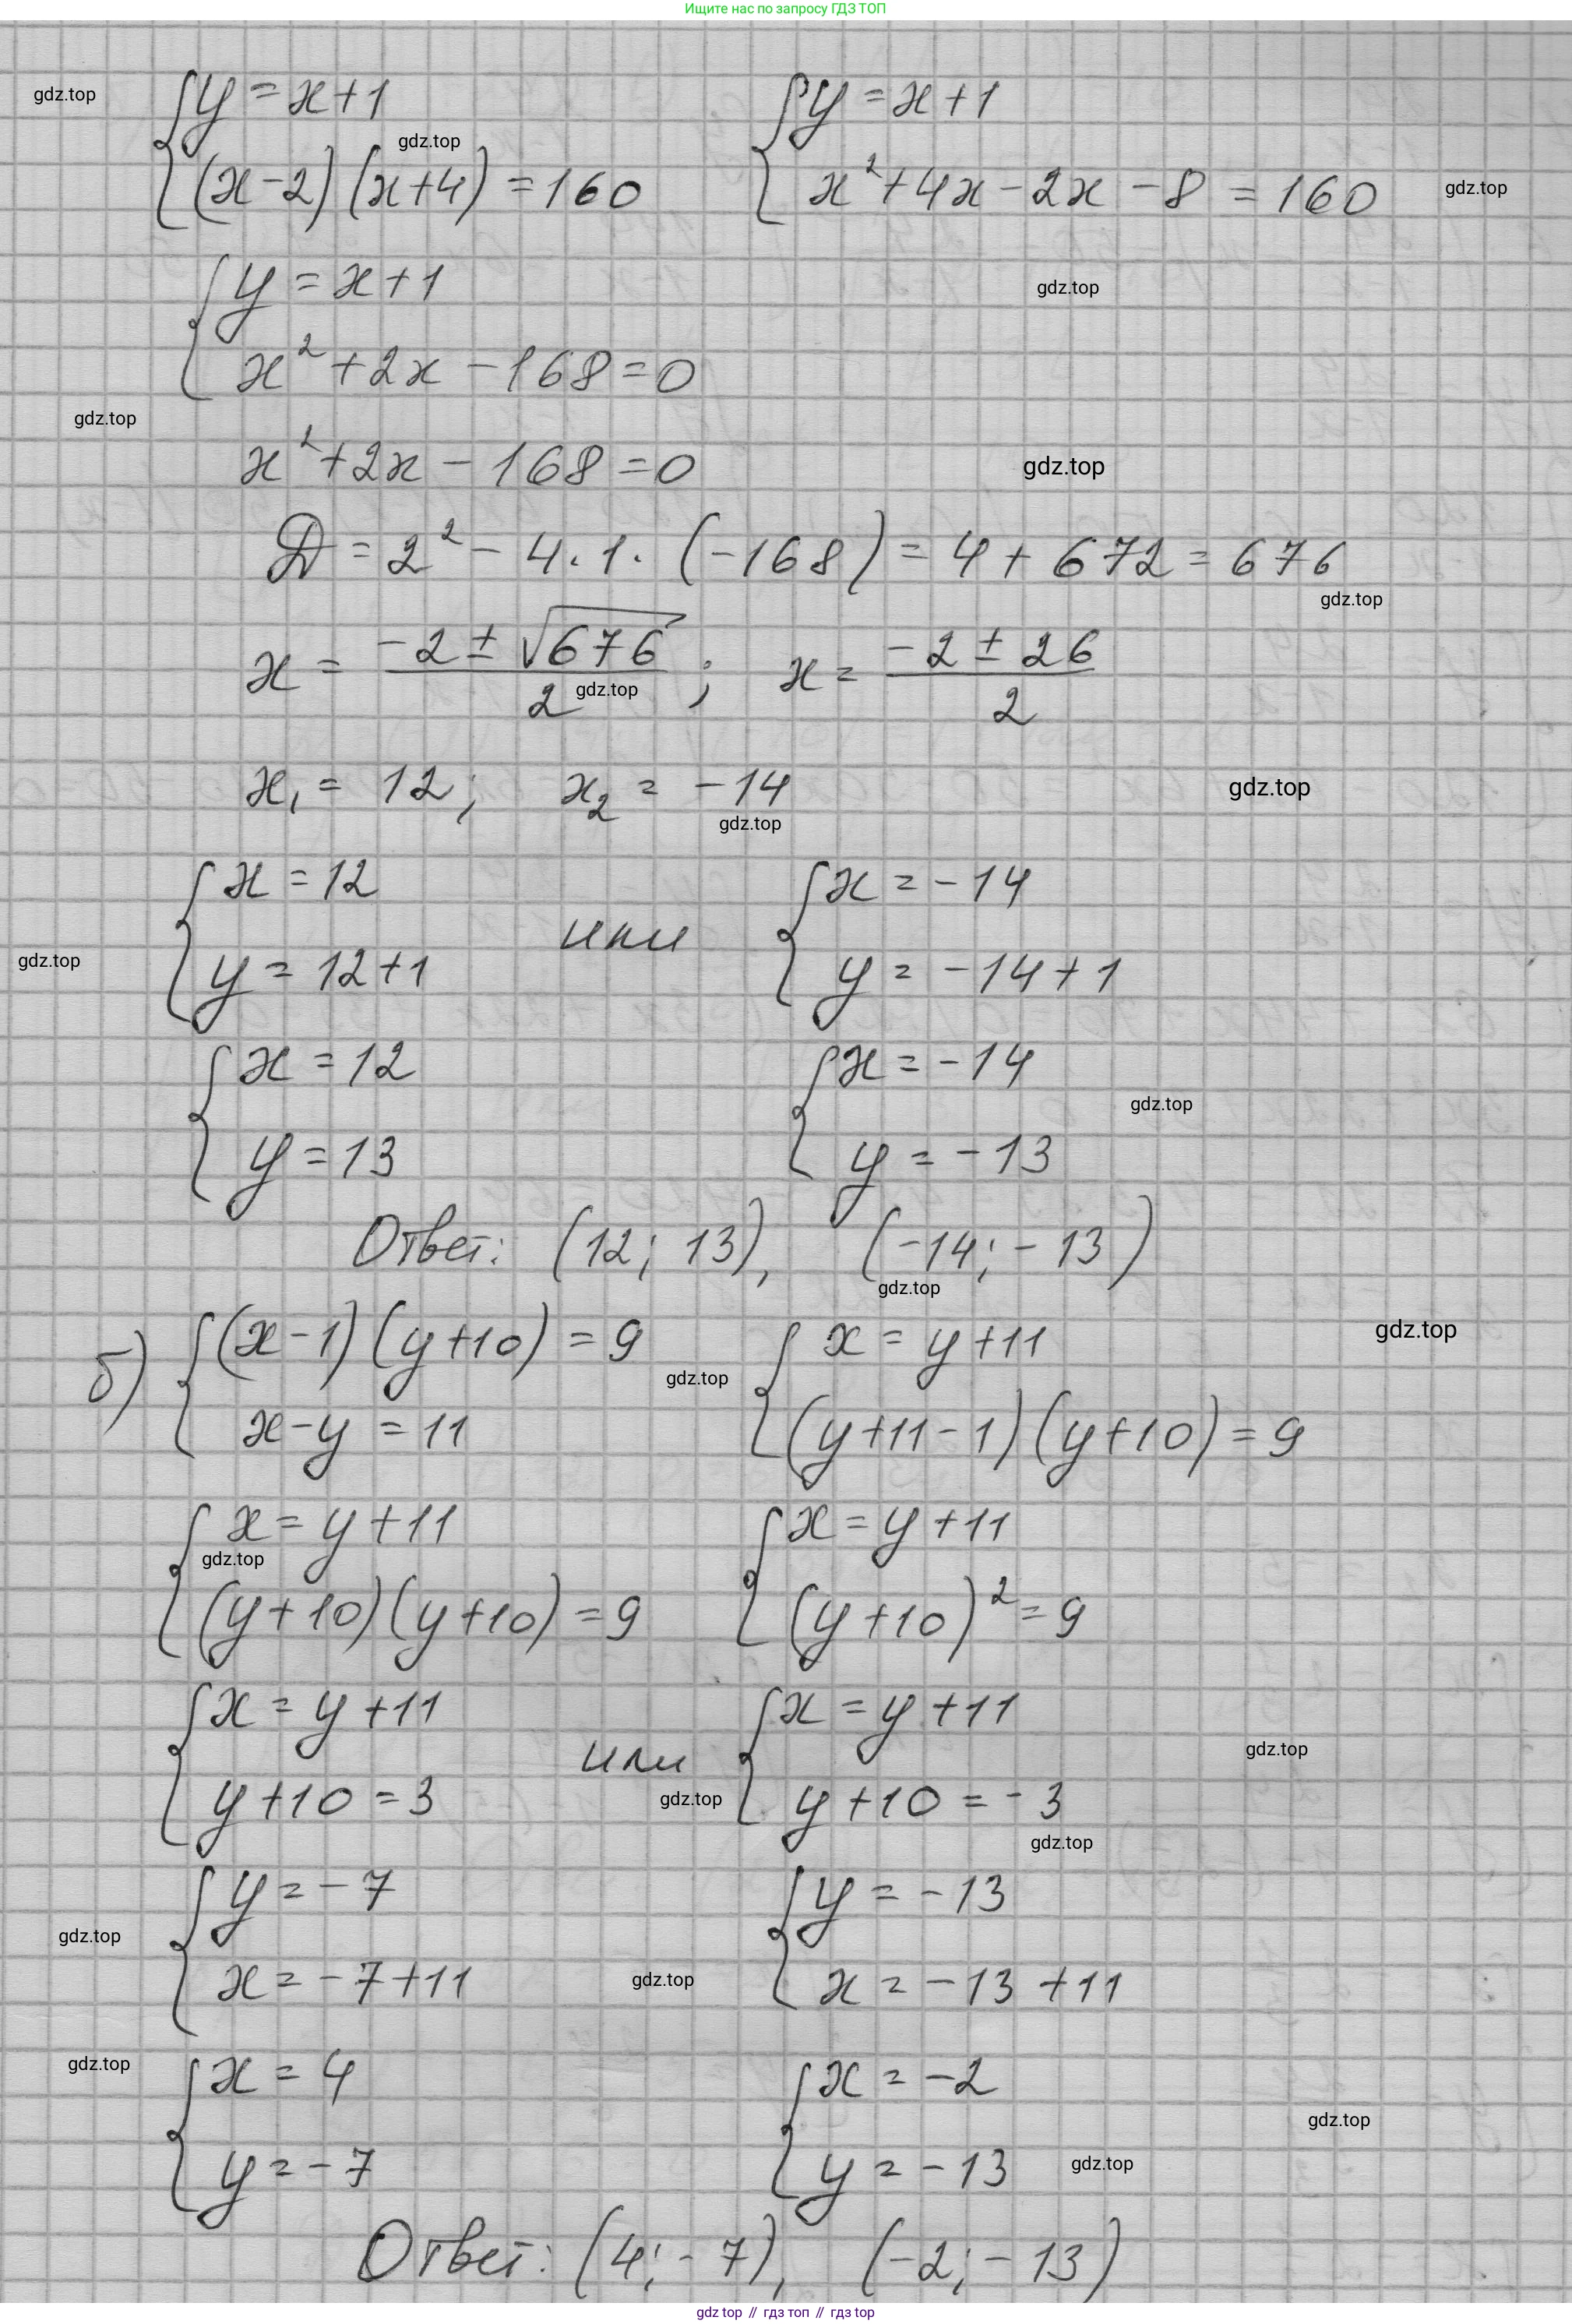 Ищите нас по запросу ГДЗ ТОП
gdz.top
{ y = x+1
gdz.top
(x-2)(x+4) = 160
{ y = x+1
x²+4x-2x-8 = 160
gdz.top
{ y = x+1
x²+2x-168=0
gdz.top
gdz.top
x²+2x-168=0
gdz.top
D = 2² - 4·1·(-168) = 4+672 = 676
gdz.top
x = (-2±√676)/2 ; x = (-2±26)/2
gdz.top
x₁ = 12; x₂ = -14
gdz.top
gdz.top
{ x = 12
y = 12+1
или
{ x = -14
y = -14+1
gdz.top
{ x = 12
y = 13
{ x = -14
y = -13
gdz.top
Ответ: (12; 13), (-14; -13)
gdz.top
gdz.top
б) { (x-1)(y+10) = 9
x-y = 11
gdz.top
{ x = y+11
(y+11-1)(y+10) = 9
{ x = y+11
gdz.top
(y+10)(y+10) = 9
{ x = y+11
(y+10)² = 9
{ x = y+11
y+10 = 3
или
gdz.top
{ x = y+11
y+10 = -3
gdz.top
gdz.top
{ y = -7
x = -7+11
gdz.top
gdz.top
{ y = -13
x = -13+11
gdz.top
{ x = 4
y = -7
{ x = -2
y = -13
gdz.top
gdz.top
Ответ: (4; -7), (-2; -13)
gdz top // гдз топ // гдз top